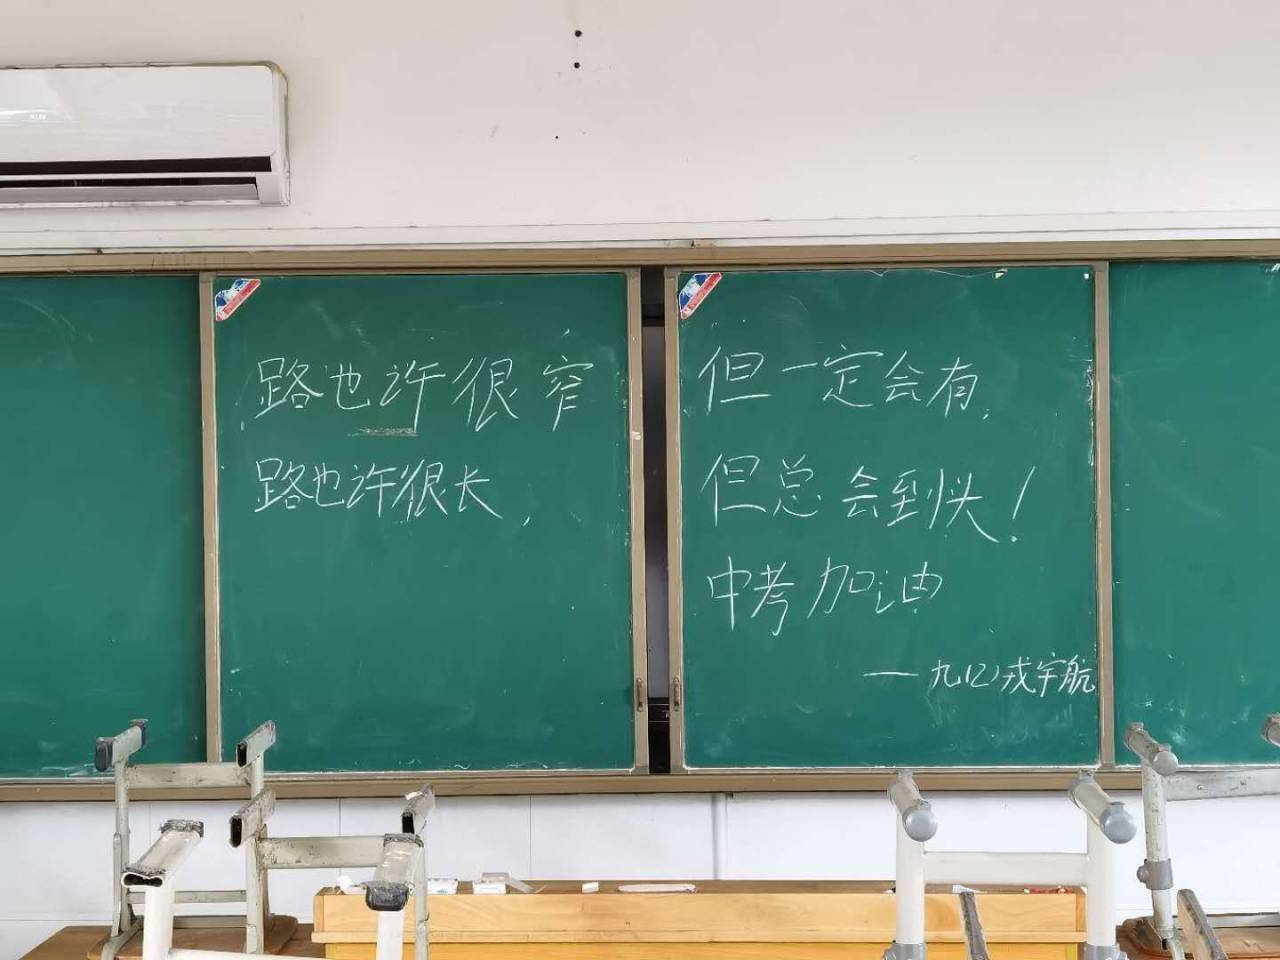 路也许很窄
但一定会有,
路也许很长,
但总会到头!
中考加油
——九(2)戎宇航